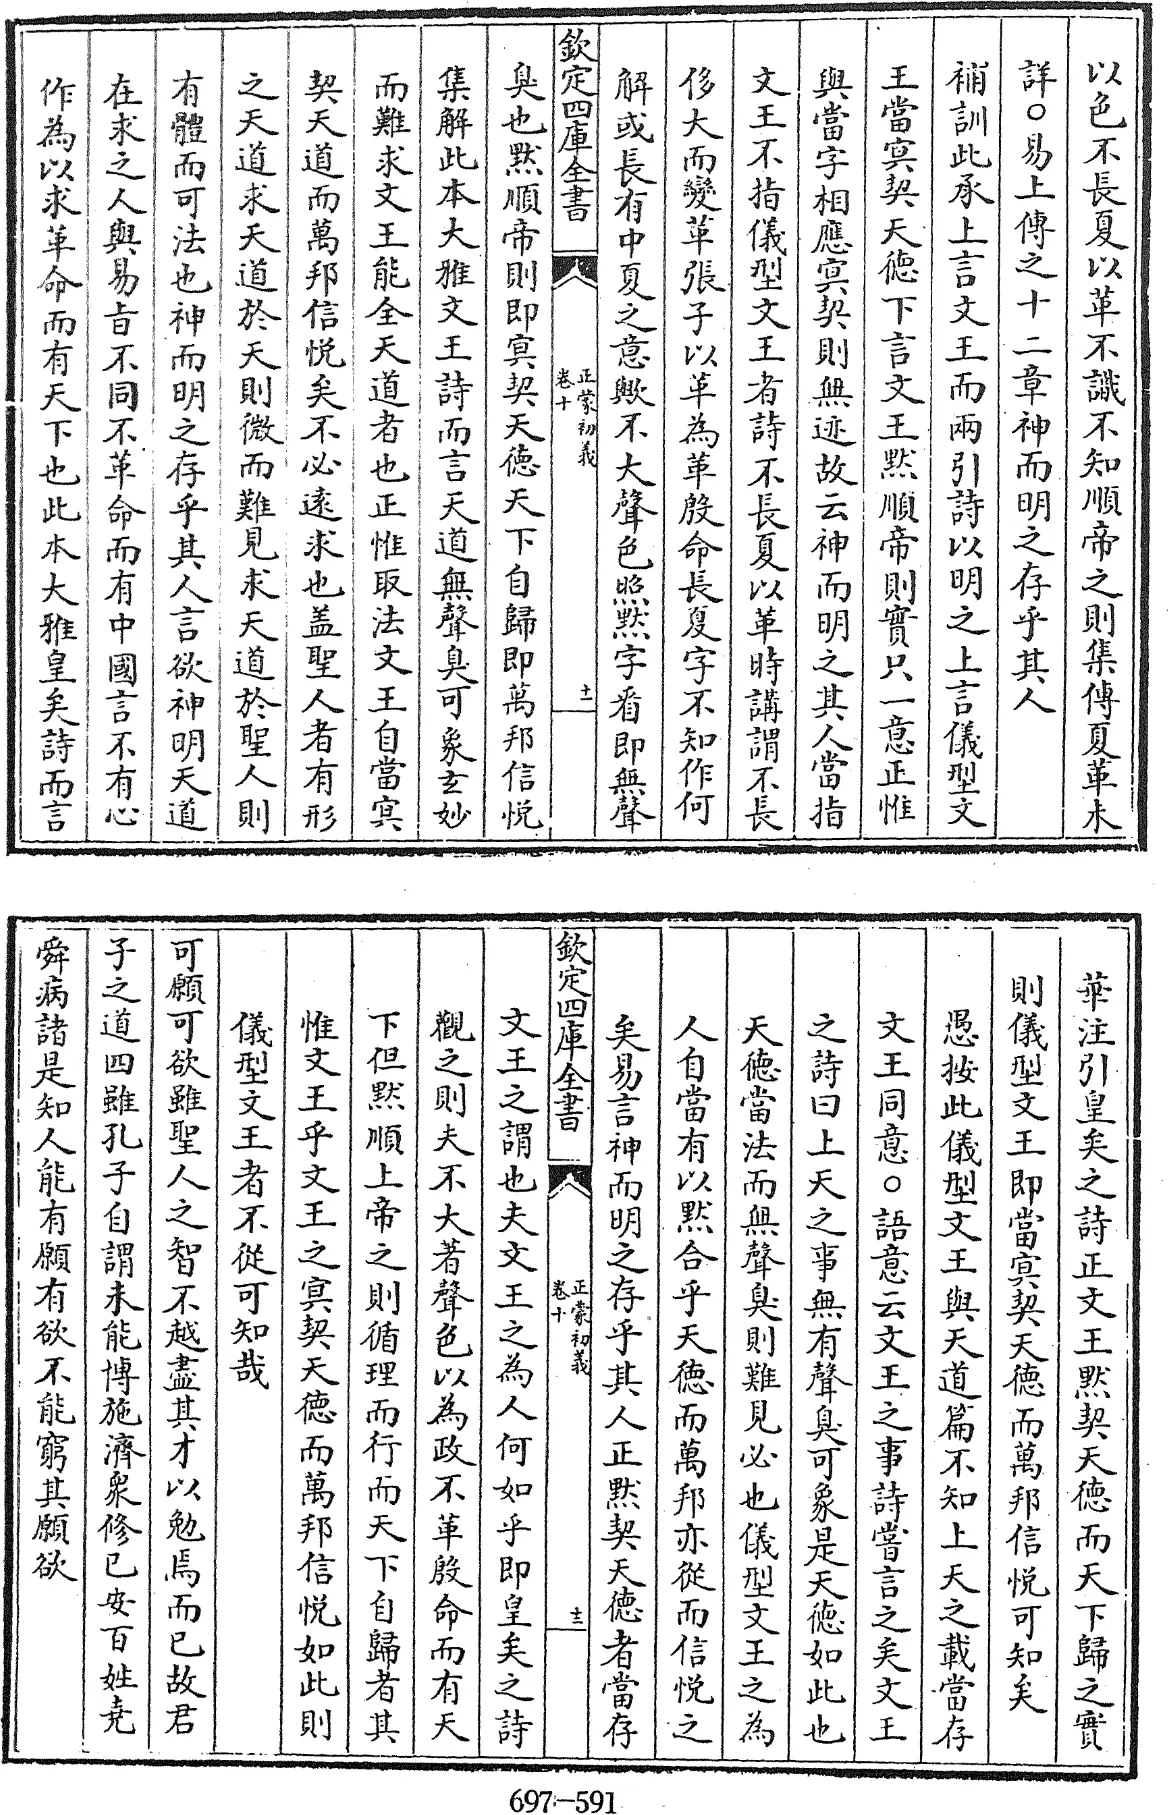 以色不長夏以革不識不知順帝之則集傳夏革未
詳○易上傳之十二章神而明之存乎其人
補訓此承上言文王而兩引詩以明之上言儀型文
王當冥契天德下言文王黙順帝則實只一意正惟
與當字相應冥契則無迹故云神而明之其人當指
文王不指儀型文王者詩不長夏以革時講謂不長
侈大而變革張子以革為革殷命長夏字不知作何
解或長有中夏之意歟不大聲色照黙字看即無聲
欽定四庫全書
正蒙初義
卷十
十一
臭也黙順帝則即冥契天德天下自歸即萬邦信悦
集解此本大雅文王詩而言天道無聲臭可象玄妙
而難求文王能全天道者也正惟取法文王自當冥
契天道而萬邦信悦矣不必遠求也盖聖人者有形
之天道求天道於天則微而難見求天道於聖人則
有體而可法也神而明之存乎其人言欲神明天道
在求之人與易旨不同不革命而有中國言不有心
作為以求革命而有天下也此本大雅皇矣詩而言
華注引皇矣之詩正文王黙契天德而天下歸之實
則儀型文王即當冥契天德而萬邦信悦可知矣
愚按此儀型文王與天道篇不知上天之載當存
文王同意○語意云文王之事詩嘗言之矣文王
之詩曰上天之事無有聲臭可象是天德如此也
天德當法而無聲臭則難見必也儀型文王之為
人自當有以黙合乎天德而萬邦亦從而信悦之
矣易言神而明之存乎其人正黙契天德者當存
欽定四庫全書
正蒙初義
卷十
十二
文王之謂也夫文王之為人何如乎即皇矣之詩
觀之則夫不大著聲色以為政不革殷命而有天
下但黙順上帝之則循理而行而天下自歸者其
惟文王乎文王之冥契天德而萬邦信悦如此則
儀型文王者不從可知哉
可願可欲雖聖人之智不越盡其才以勉焉而已故君
子之道四雖孔子自謂未能博施濟衆修已安百姓堯
舜病諸是知人能有願有欲不能窮其願欲
697-591